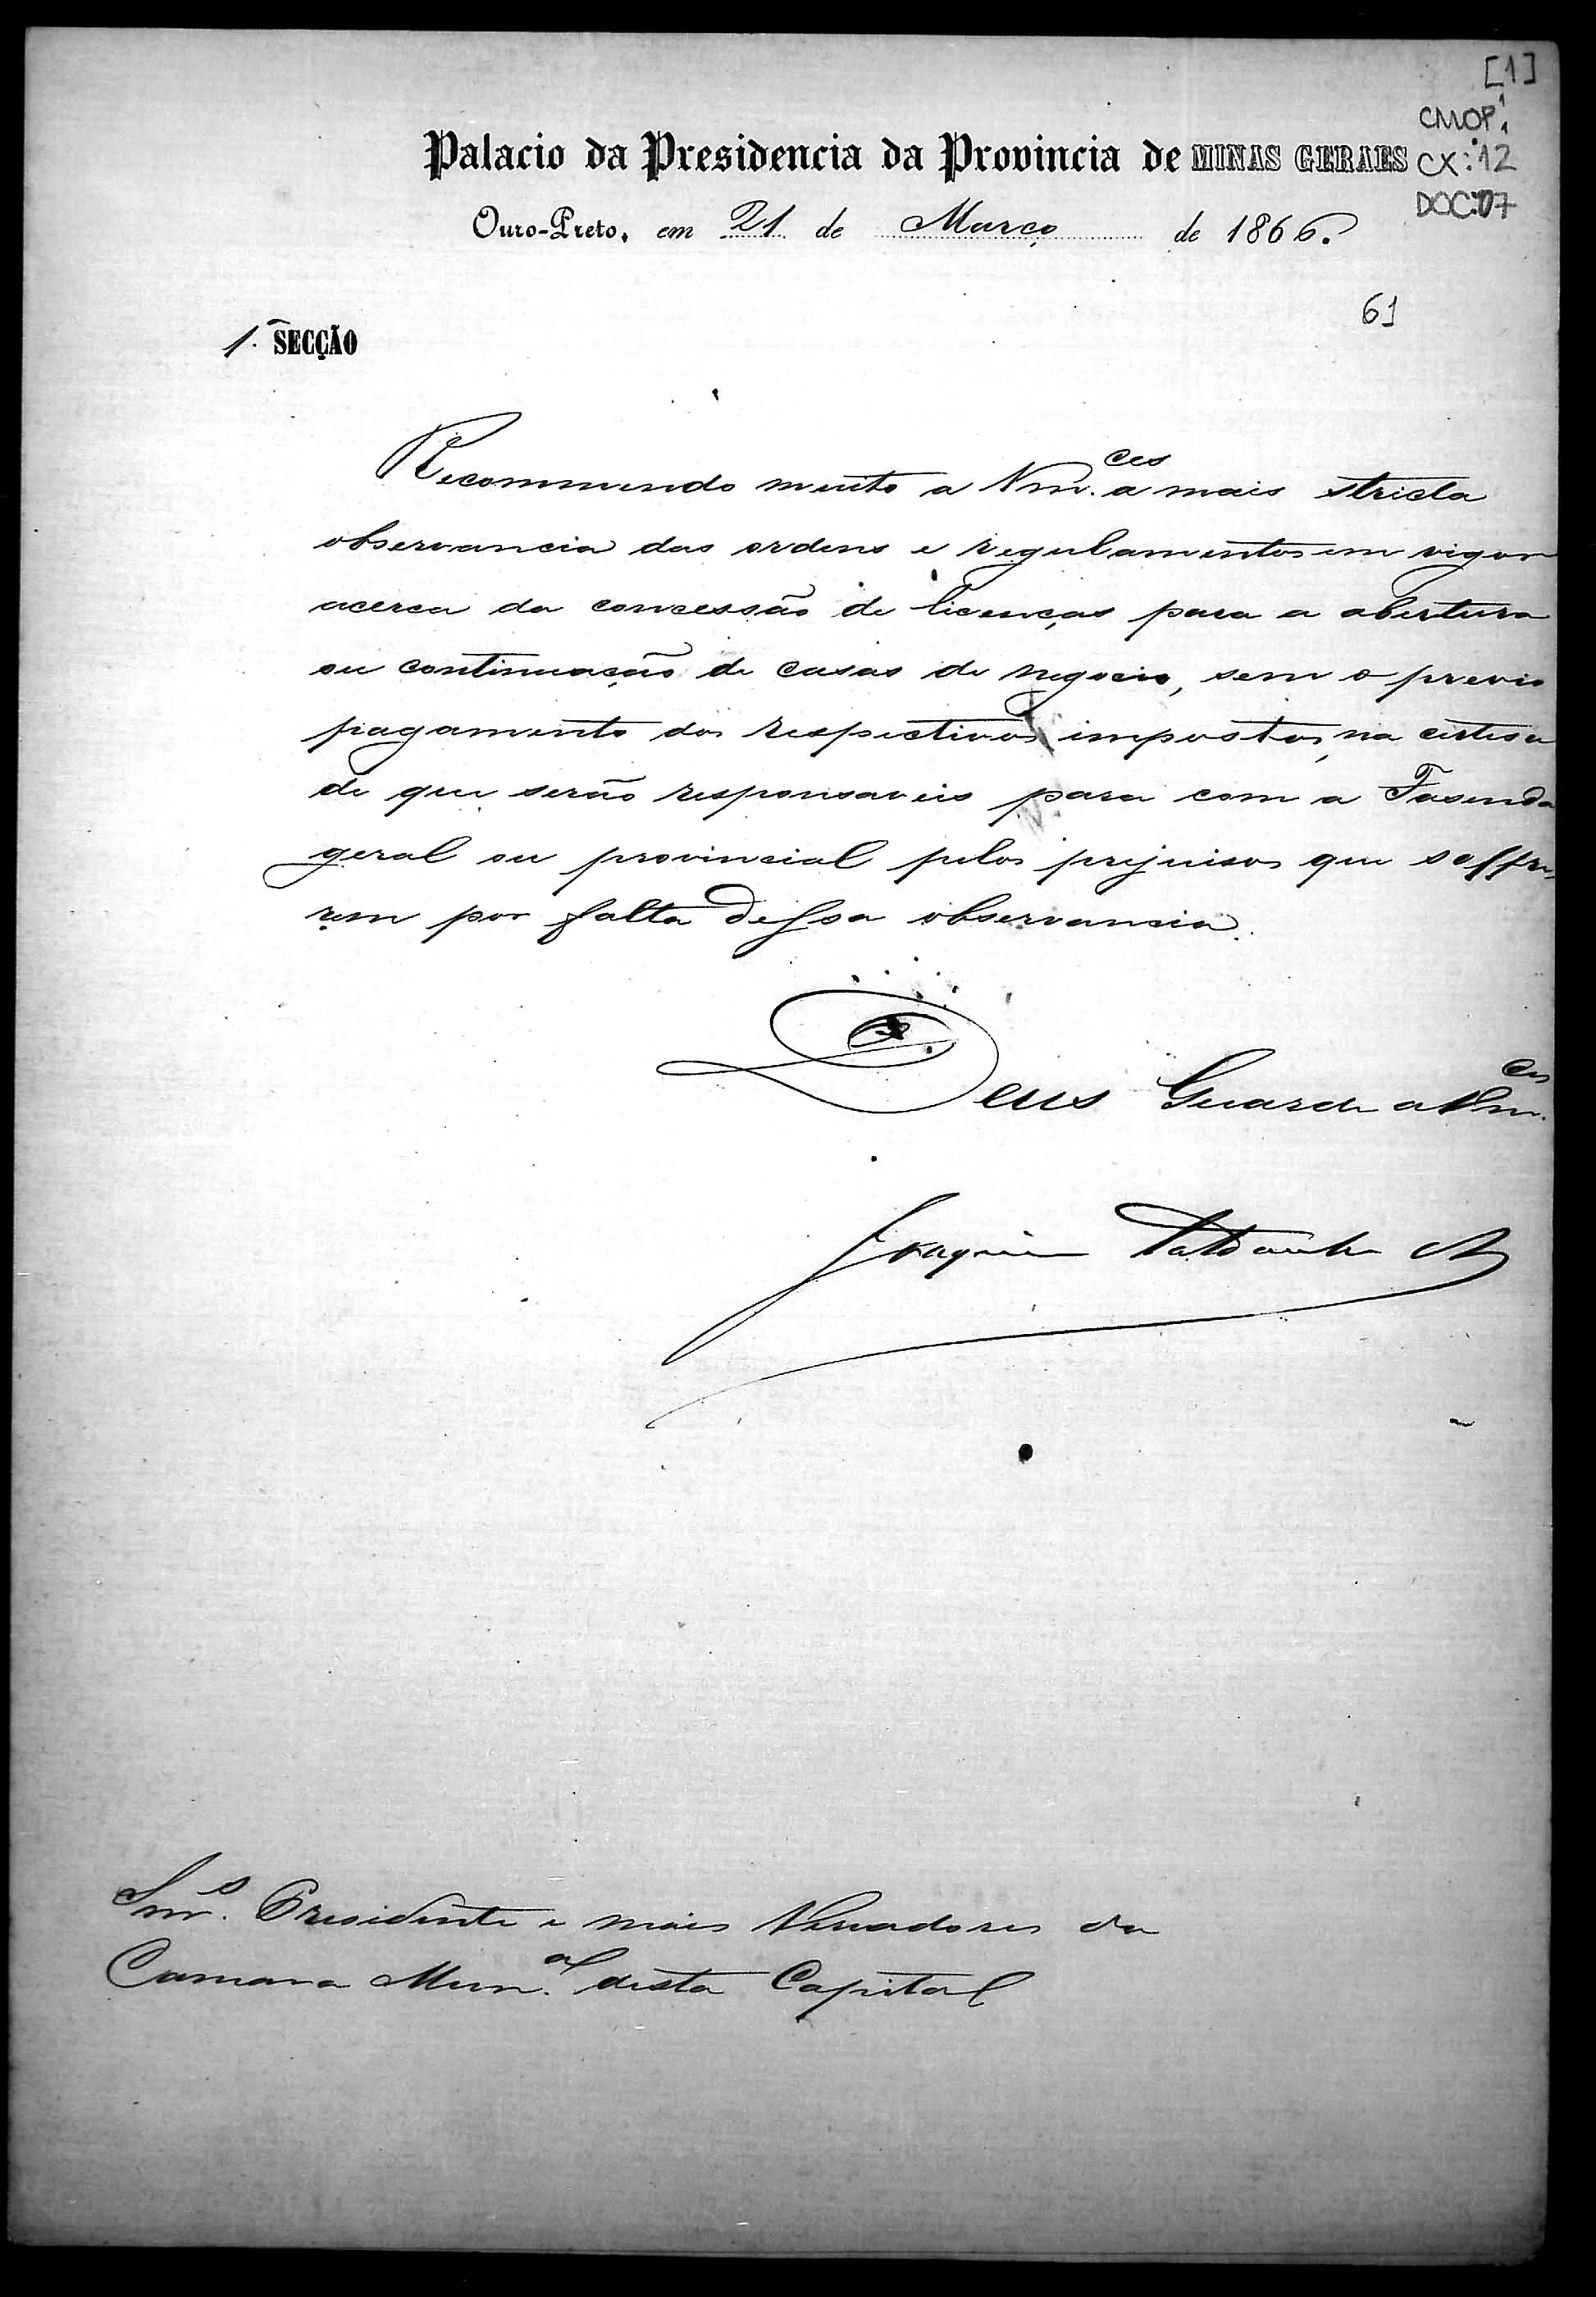 [1]
CMOP 1
CX: 12
DOC: 07
Palacio da Presidencia da Provincia de MINAS GERAES
Ouro-Preto, em 21 de Março de 1866.
61
1.ª SECÇÃO
Recommendo muito a Vm.ces a mais stricta
observancia das ordens e regulamentos em vigor
acerca da concessão de licenças para a abertura
ou continuação de casas de negocio, sem o previo
pagamento dos respectivos impostos, na certesa
de que serão responsaveis para com a Fasenda
geral ou provincial pelos prejuisos que soffre-
rem por falta dessa observancia.
Deus Guarde a Vm.ces
Joaquim Saldanha
Snr.s Presidente e mais Vereadores da
Camara Mun.al desta Capital